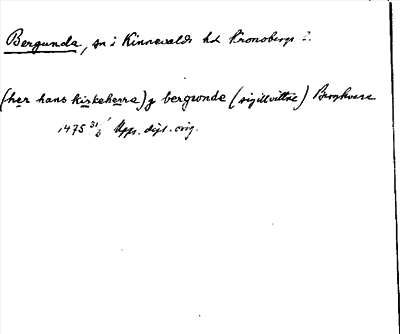 Bergunda, sn i Kinnevalds hd Kronobergs l.
(her hans kirkeherra) y bergwnde (sigillvittne) Bergkvara
1475 31/6 Upps. dipl. orig.